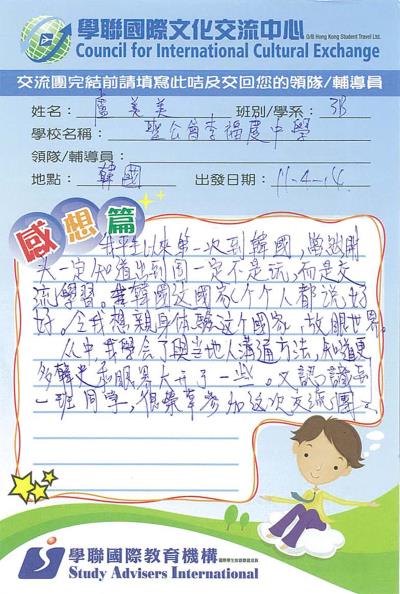 學聯國際文化交流中心
O/B Hong Kong Student Travel Ltd.
Council for International Cultural Exchange
交流團完結前請填寫此咭及交回您的領隊/輔導員
姓名： 盧美美 班別/學系： 3B
學校名稱： 聖公會李福慶中學
領隊/輔導員：
地點： 韓國 出發日期： 11-4-14
感想篇
我平生以來第一次到韓國，
一定知道出到國一定不是玩，而是交
流學習。韓國這國家個個人都說好
好。令我想親身体驗这个國家，放眼世界。
从中我學会了與当地人溝通方法，知道更
多歷史和眼界大开了一些。又認識
一班同学，很榮幸参加这次交流團。
學聯國際教育機構
Study Advisers International